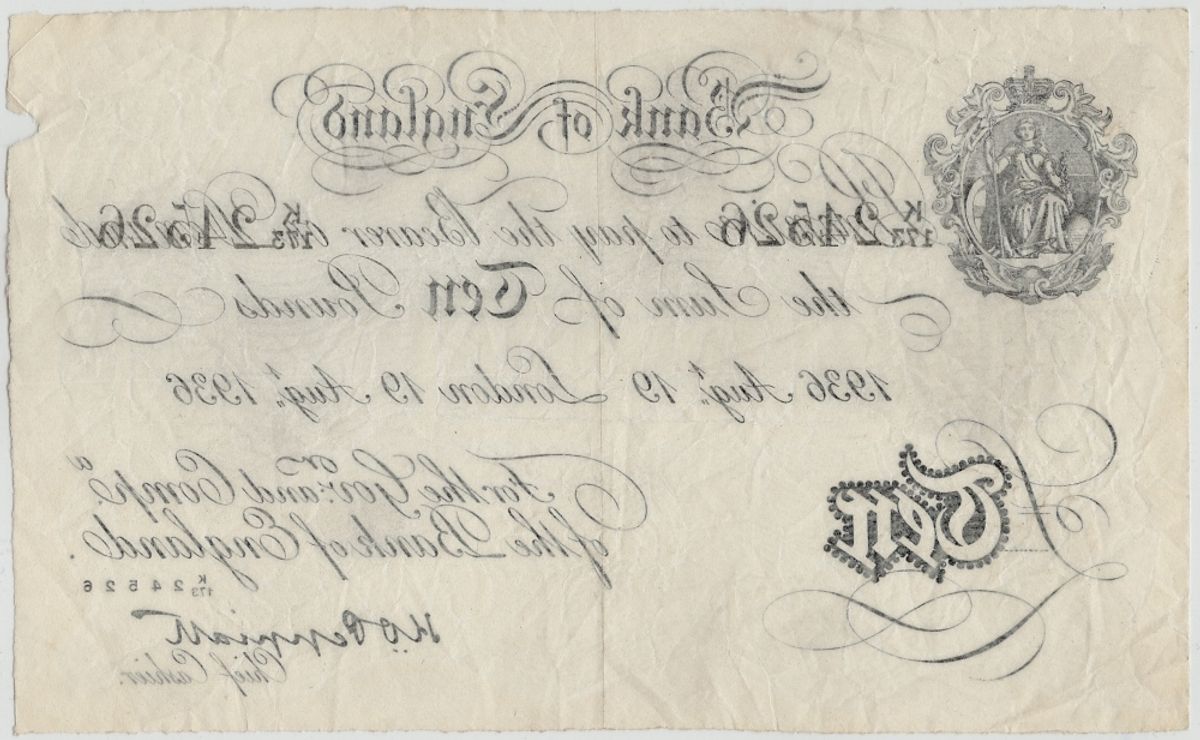 Bank of England
K/173 24526 to pay the Bearer K/173 24526
the Sum of Ten Pounds
1936 Augt. 19 London 19 Augt. 1936
For the Govr: and Compa.
of the Bank of England.
£ Ten
K/173 24526
K O Peppiatt
Chief Cashier.